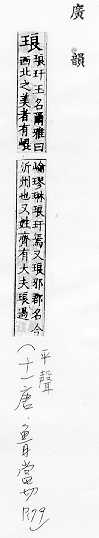 廣韻
琅
琅玕玉名爾雅曰
西北之美者有崐
崘璆琳琅玕焉又琅邪郡名今
沂州也又姓齊有大夫琅過
平聲
(十一唐·魯當切
P.79